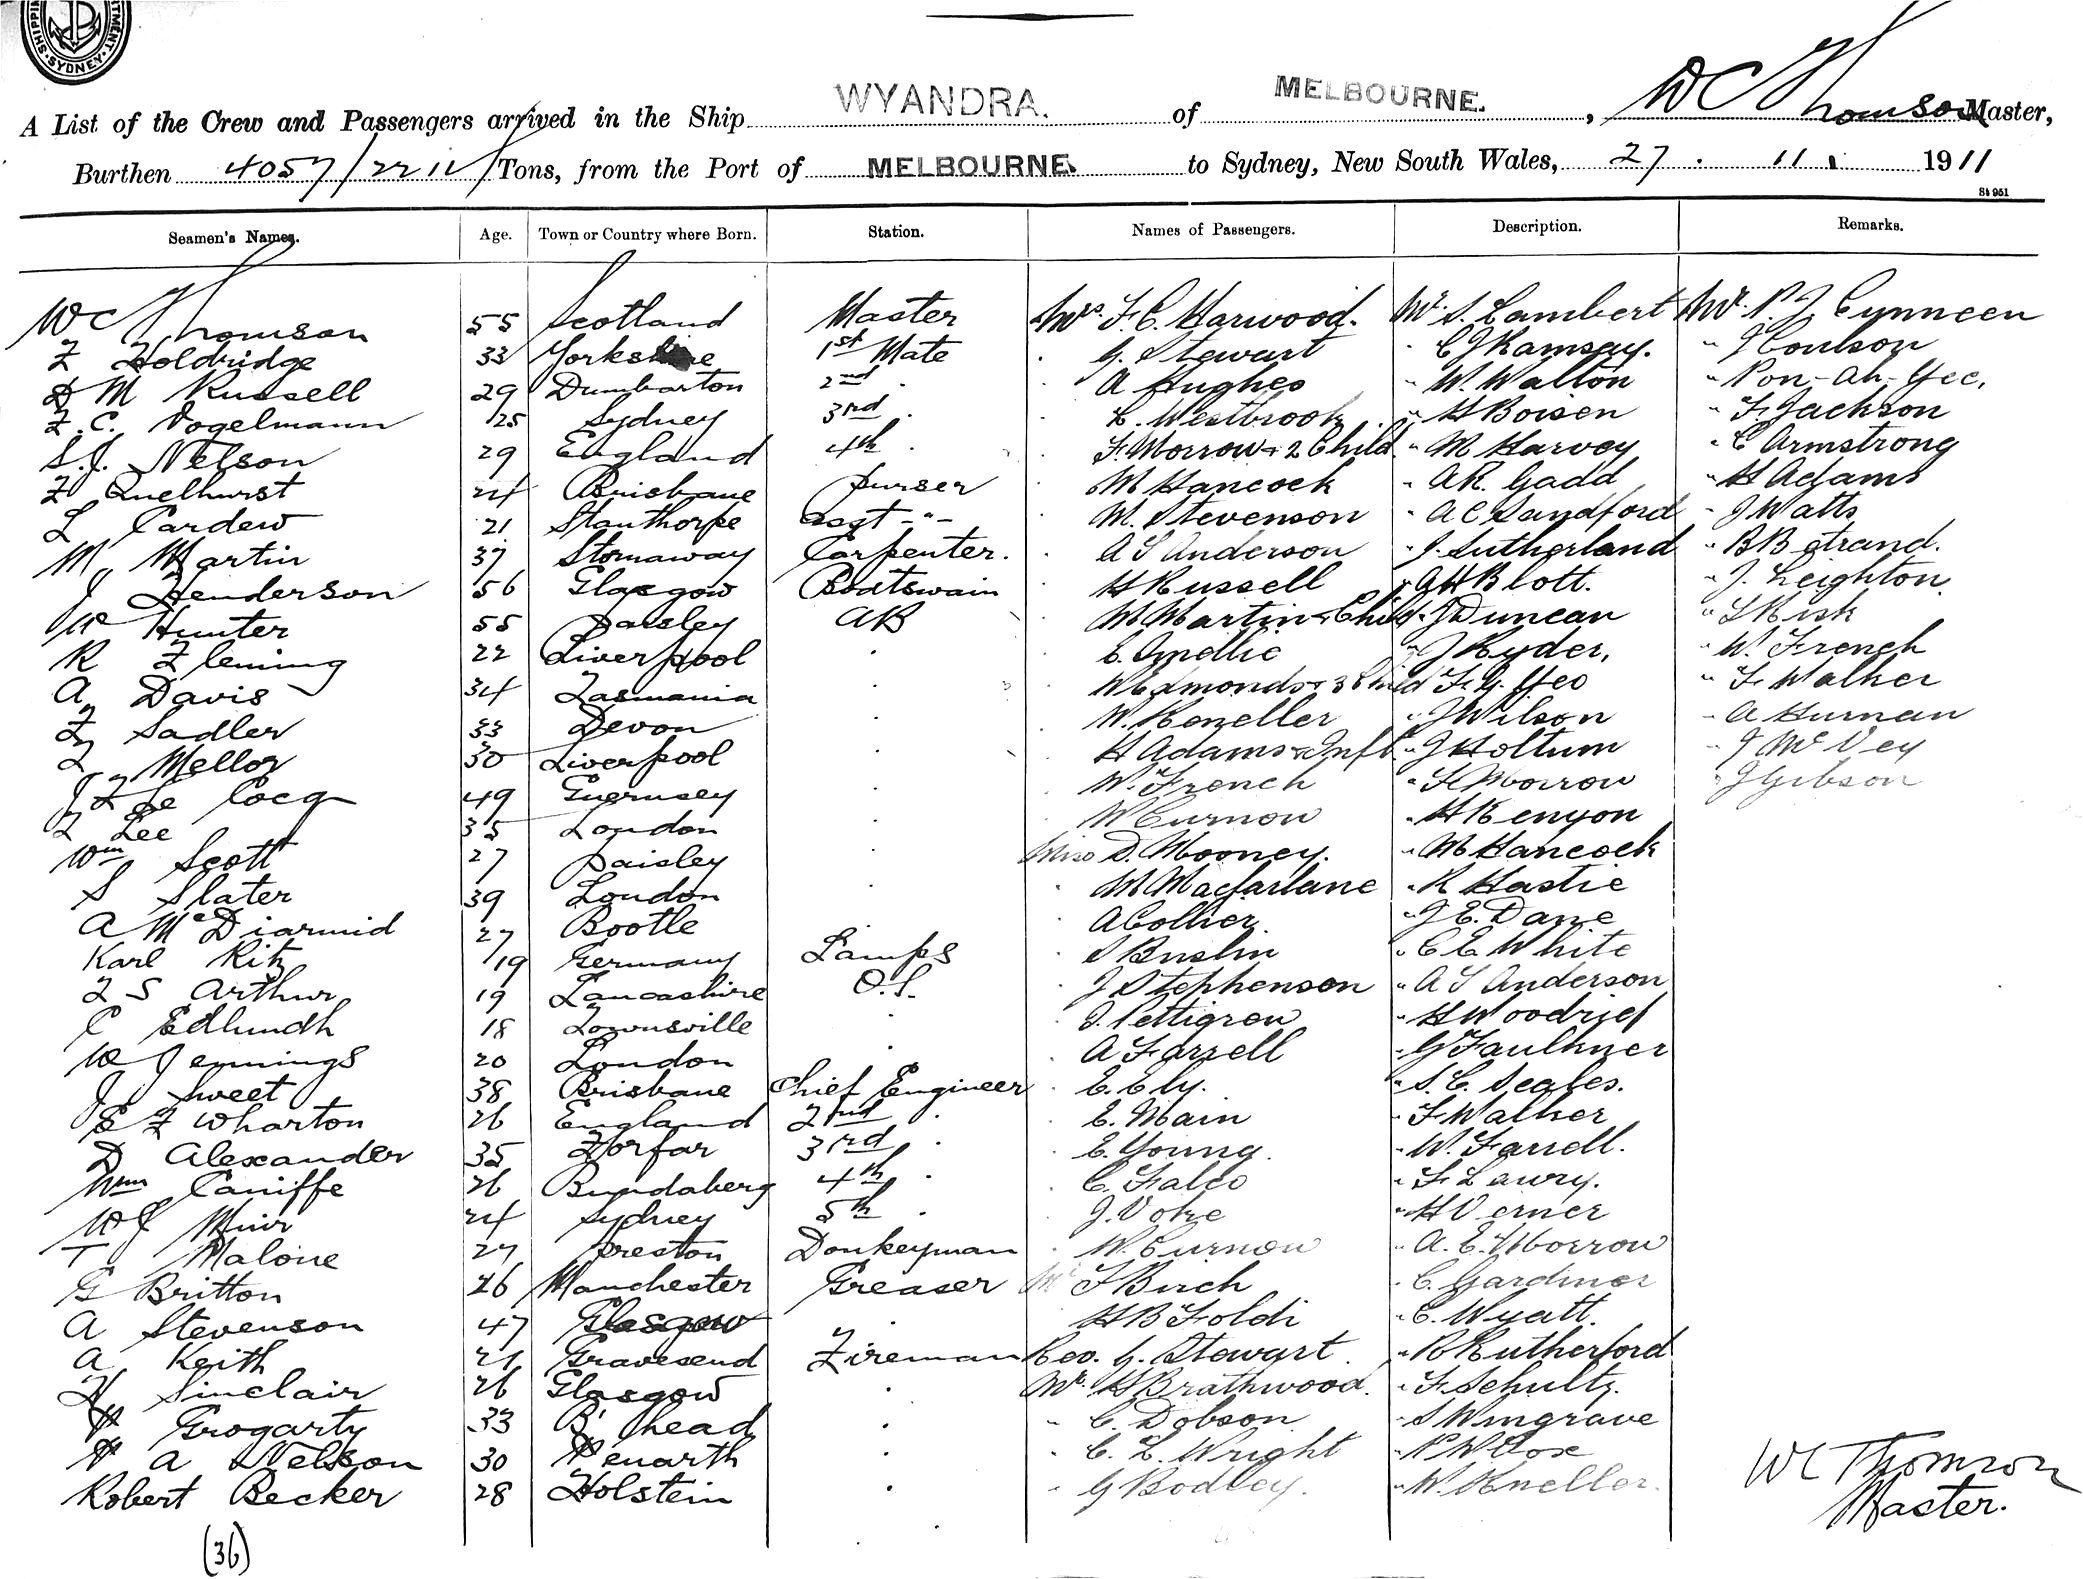 SHIPPING DEPARTMENT. SYDNEY.
A List of the Crew and Passengers arrived in the Ship WYANDRA. of MELBOURNE. , W C Thomson Master,
Burthen 4057/2211 Tons, from the Port of MELBOURNE. to Sydney, New South Wales, 27. 11. 1911
St 951
Seamen's Names. Age. Town or Country where Born. Station. Names of Passengers. Description. Remarks.
W C Thomson 55 Scotland Master Mrs. F. C. Harwood. Mr S. Lambert Mr. P. J. Cynneen
F Holdridge 33 Yorkshire 1st Mate . G. Stewart " C J Ramsay. " J Coulson
D M Russell 29 Dumbarton 2nd . . A Hughes " W. Walton " Pon-Ah-Yee.
F. C. Vogelmann 25 Sydney 3rd . . L. Westbrook " H Boisen " F. Jackson
S. J. Nelson 29 England 4th . . F. Morrow + 2 Child " M Harvey " C Armstrong
F Quelhurst 24 Brisbane Purser . M Hancock " A R. Gadd " H Adams
L Cardew 21 Stanthorpe asgt -"- . M. Stevenson " A C Sandford " J Watts
M Martin 37 Stornaway Carpenter. . A S Anderson " J. Sutherland " B Bstrand.
J Henderson 56 Glasgow Boatswain . H Russell " G H Blott. " J. Leighton.
W Hunter 55 Paisley AB . M Martin + Child " J Duncan " L Risk
R Fleming 22 Liverpool . . E. Smellie " J Ryder. " W. French
A Davis 34 Tasmania . . W Edmonds + 3 Child F. G. Yeo " F. Walker
F Sadler 33 Devon . . W. Keneller " J Wilson " A Hurnan
F Mellor 30 Liverpool . . H Adams + Inft " J Holtum " J McVey
J F Le Cocq 49 Guernsey . . W. French " F. Morrow " J Gibson
F Lee 35 London . . W Curnow " H Kenyon
Wm Scott 27 Paisley . Miss D. Mooney. " M Hancock
S Slater 39 London . . M Macfarlane " R Hastie
A McDiarmid 27 Bootle . . A Collier. " J E. Dane
Karl Ritz 19 Germany Lamps . S Buslin " C E White
F S Arthur 19 Lancashire O.S. . J Stephenson " A S Anderson
C Edlundh 18 Townsville . . J. Pettigrew " H Woodrief
W Jennings 20 London . . A Farrell " G Faulkner
J Sweet 38 Brisbane Chief Engineer . E. Ely. " S. C. Scales.
E F Wharton 26 England 2nd . . E. Main " F Walker
D Alexander 35 Forfar 3rd . . E. Young. " W. Farrell.
Wm Caniffe 26 Bundaberg 4th . . C. Falco " F Lawry.
W J Muir 24 Sydney 5th . . J. Votre " H Verner
T Malone 27 Preston Donkeyman . W. Curnow " A. E. Morrow
G Britton 26 Manchester Greaser Mr F Birch " C. Gardiner
A Stevenson 47 Glasgow . . H B Foldi " C. Wyatt.
A Keith 21 Gravesend Fireman Rev. G. Stewart. " R Rutherford
H Sinclair 26 Glasgow . Mr. H Brathwood. " F. Schultz.
P Grogarty 33 B'head . " C. Dobson " S Wingrave
P A Nelson 30 Penarth . " C. L. Wright " P W Cox
Robert Becker 28 Holstein . " G Bodley. " W. Kneller.
W C Thomson
Master.
(36)